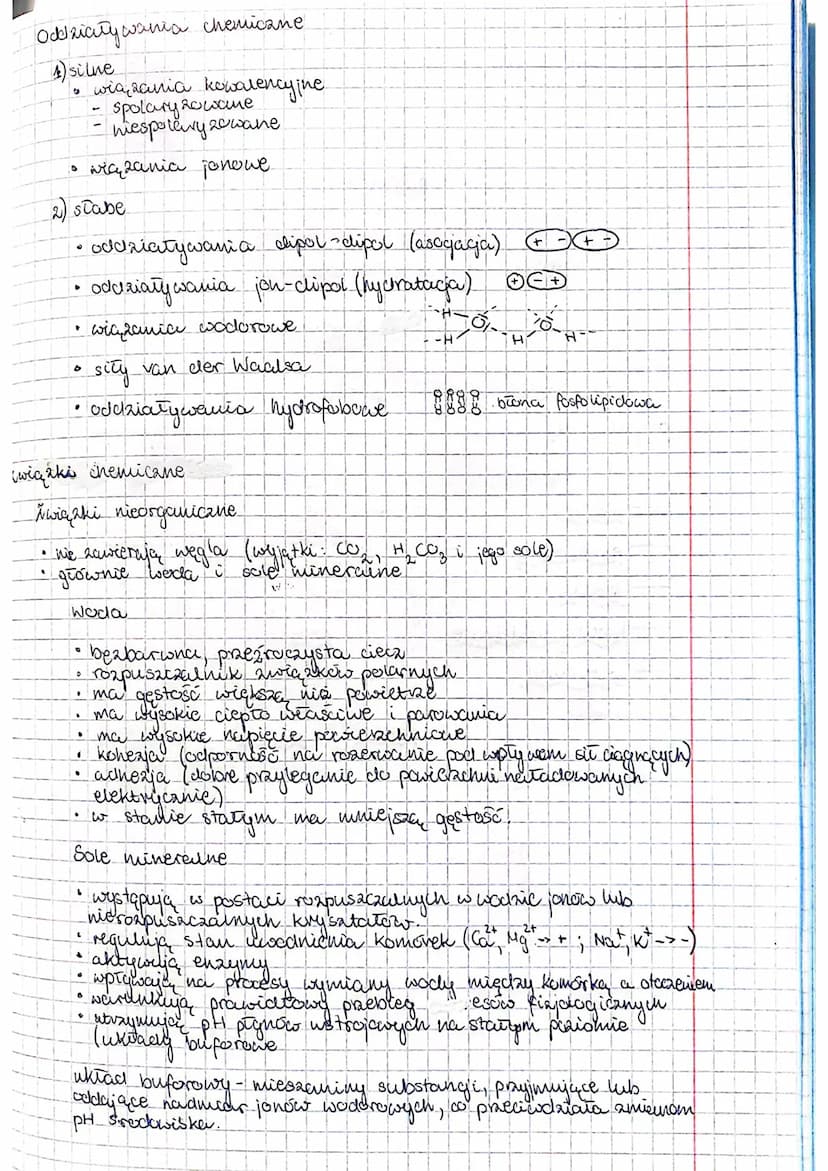 Oddziaływania chemiczne
1) silne
• wiązania kowalencyjne
- spolaryzowane
- niespolaryzowane
• wiązania jonowe
2) słabe
• oddziaływania dipol-dipol (asocjacja) + - + -
• oddziaływania jon-dipol (hydratacja) + - +
• wiązania wodorowe H O H H O H
• siły van der Waalsa
• oddziaływania hydrofobowe błona fosfolipidowa
związki chemiczne
Związki nieorganiczne
• nie zawierają węgla (wyjątki: CO₂, H₂CO₃ i jego sole)
• głównie woda i sole mineralne
Woda
• bezbarwna, przeźroczysta ciecz
• rozpuszczalnik związków polarnych
• ma gęstość większą niż powietrze
• ma wysokie ciepło właściwe i parowania
• ma wysokie napięcie powierzchniowe
• kohezja (odporność na rozerwanie pod wpływem sił ciągnących)
• adhezja (dobre przyleganie do powierzchni naładowanych
elektrycznie)
• w stanie stałym ma mniejszą gęstość.
Sole mineralne
• występują w postaci rozpuszczalnych w wodzie jonów lub
nierozpuszczalnych kryształów.
• regulują stan uwodnienia komórek (Ca²⁺, Mg²⁺ -> + ; Na⁺, K⁺ -> -)
• aktywują enzymy
• wpływają na procesy wymiany wody między komórką a otoczeniem
• warunkują prawidłowy przebieg esów fizjologicznych
• utrzymując pH płynów ustrojowych na stałym poziomie
(układy buforowe
układ buforowy - mieszaniny substancji, przyjmujące lub
oddające nadmiar jonów wodorowych, co przeciwdziała zmianom
pH środowiska.